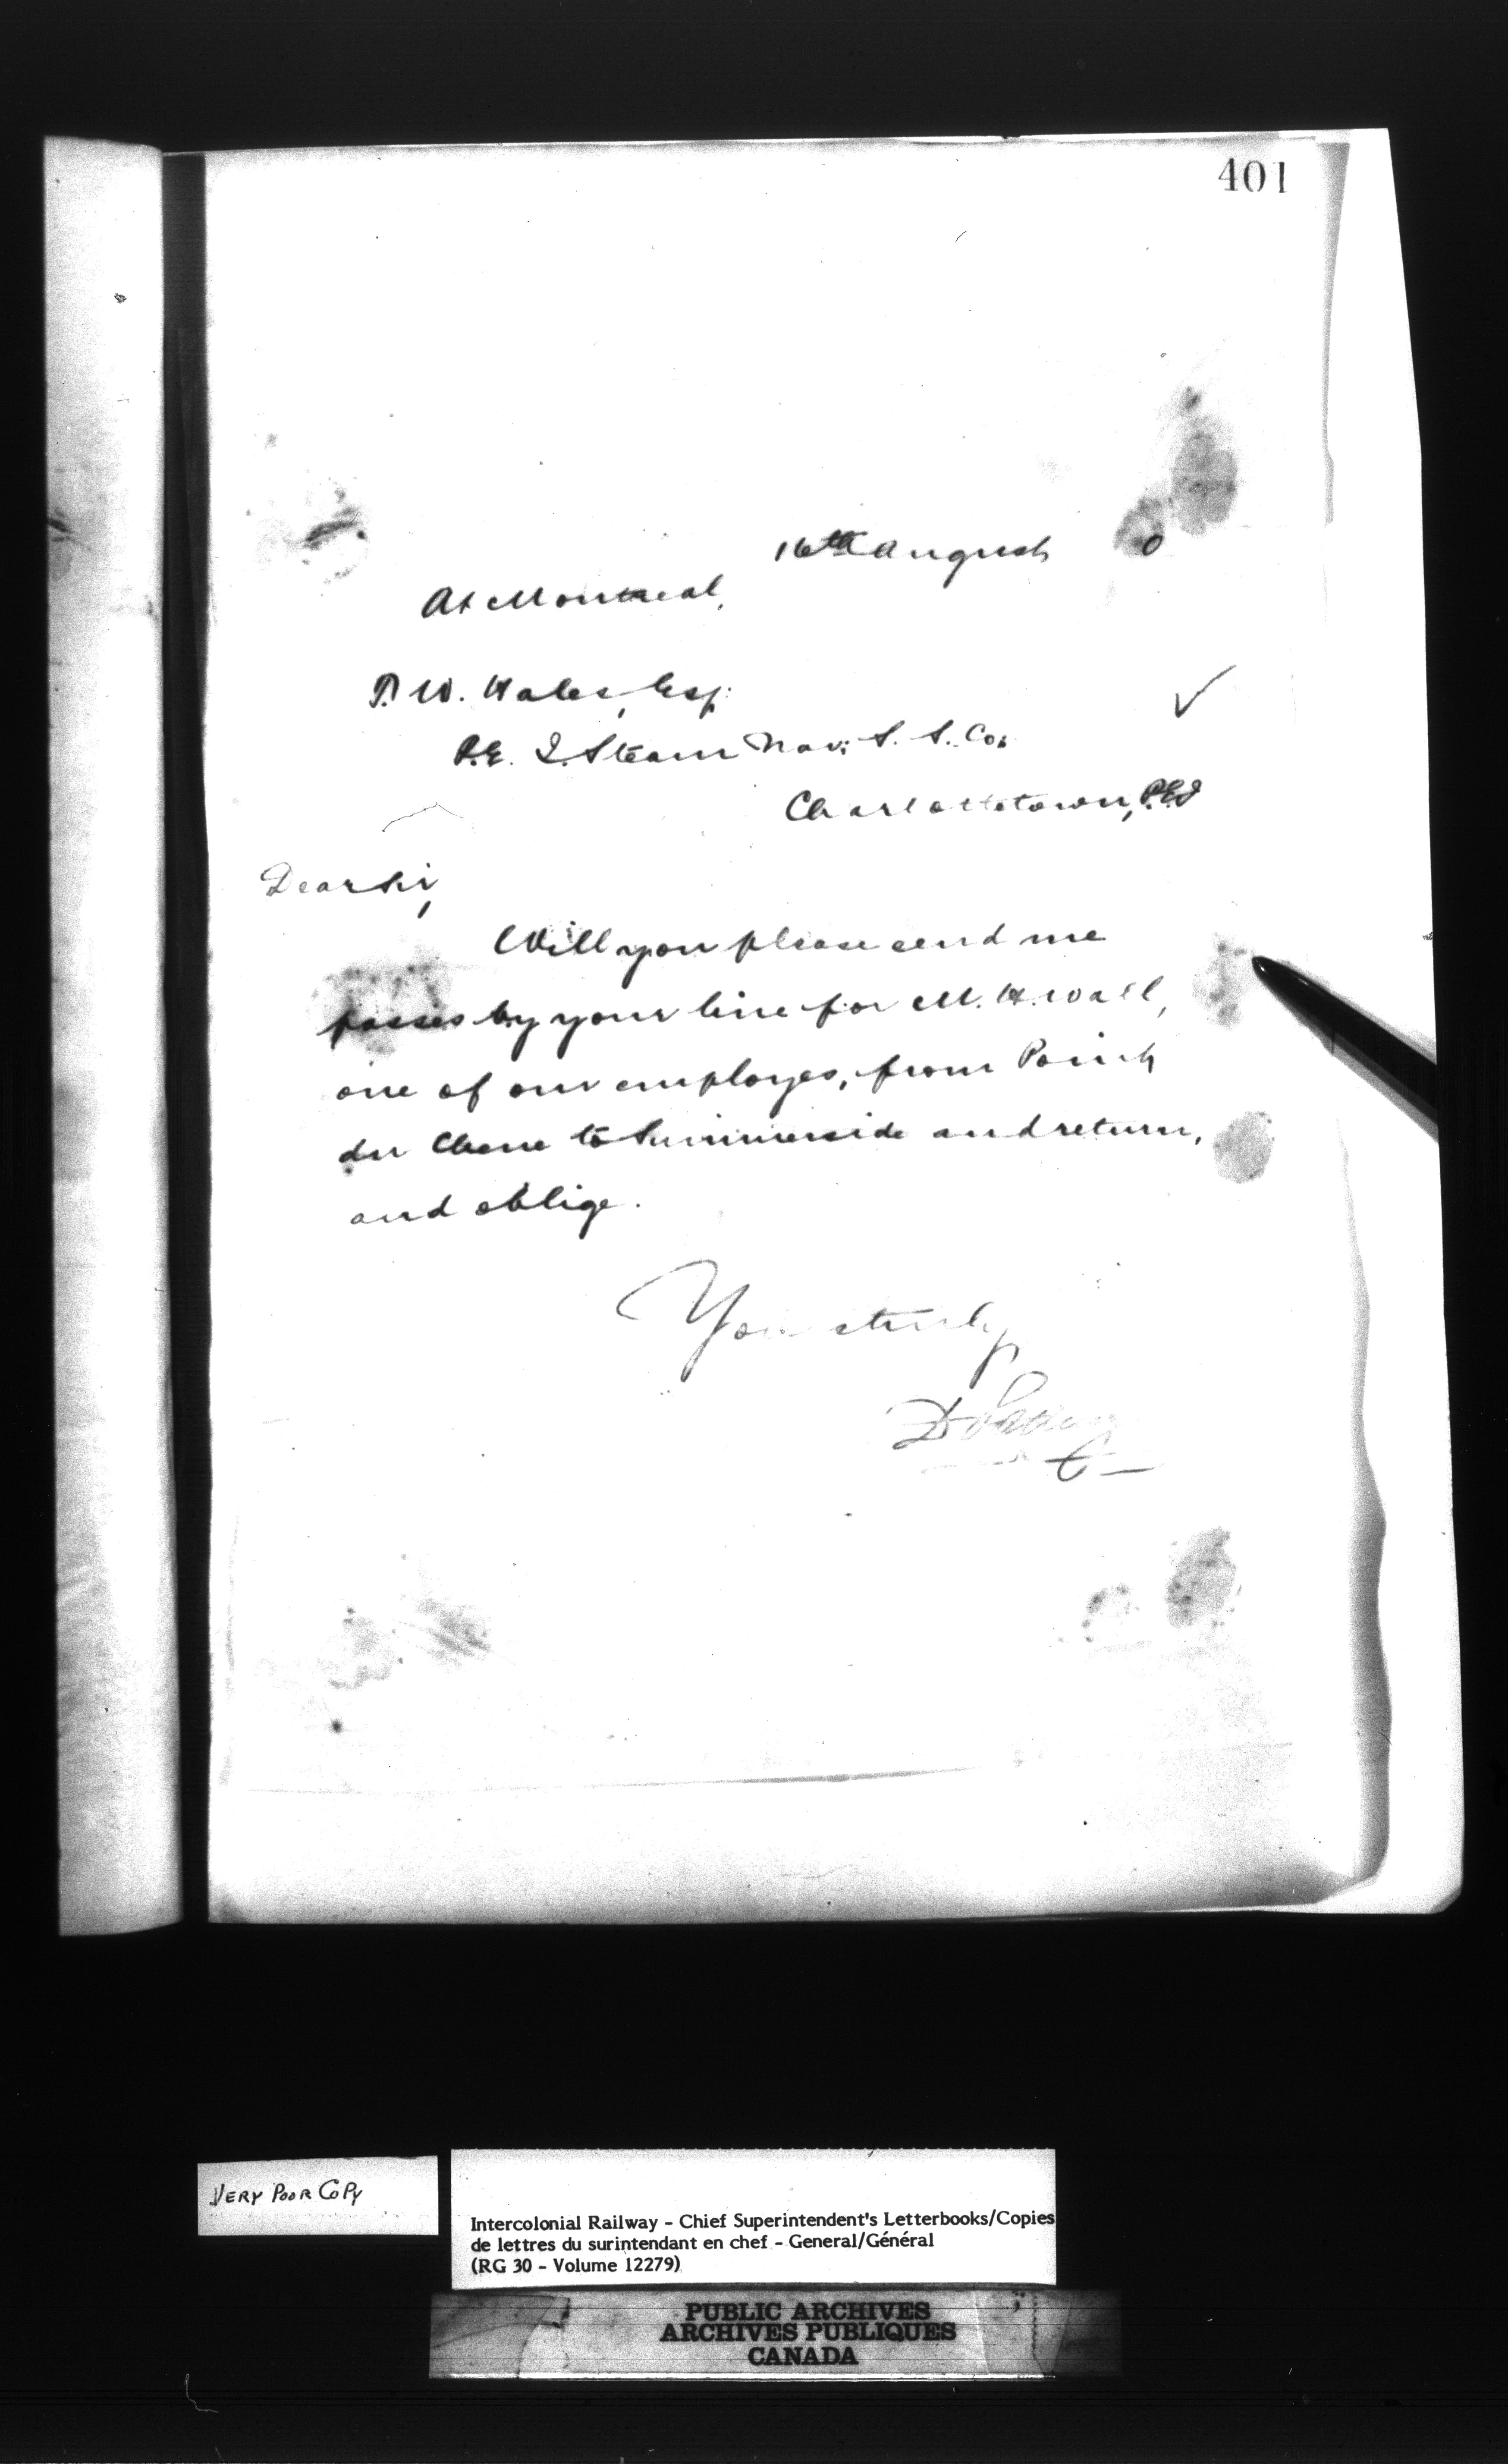 401
16th August 0
At Montreal,
F. W. Hales, Esq:
P.E. I. Steam Nav: S. S. Co.
Charlottetown, P.E.I
Dear Sir,
Will you please send me
passes by your line for M. H. Wall,
one of our employes, from Point
du Chene to Summerside and return,
and oblige.
Yours truly
VERY POOR COPY
Intercolonial Railway - Chief Superintendent's Letterbooks/Copies
de lettres du surintendant en chef - General/Général
(RG 30 - Volume 12279)
PUBLIC ARCHIVES
ARCHIVES PUBLIQUES
CANADA